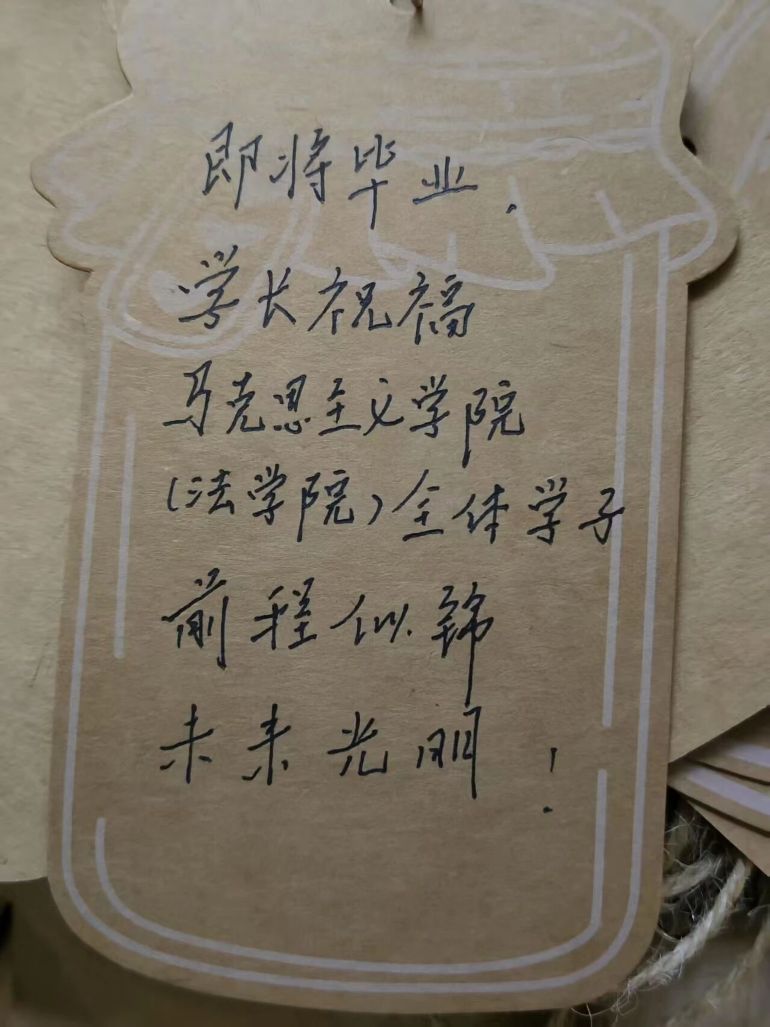 即将毕业,
学长祝福
马克思主义学院
(法学院)全体学子
前程似锦
未来光明!